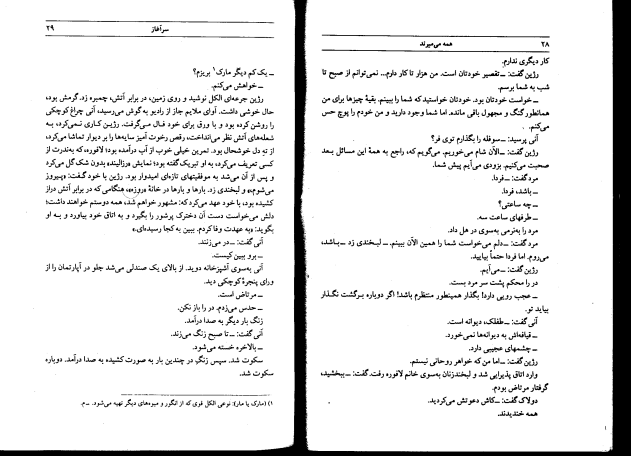 ۲۸
همه می‌میرند
کار دیگری ندارم.
رژین گفت: ــ تقصیر خودتان است. من هزار تا کار دارم... نمی‌توانم از صبح تا
شب به شما برسم.
ــ خواست خودتان بود. خودتان خواستید که شما را ببینم. بقیهٔ چیزها برای من
همانطور گنگ و مجهول باقی مانده. اما شما وجود دارید و من خودم را پوچ حس
می‌کنم.
آنی پرسید: ــ سوفله را بگذارم توی فر؟
رژین گفت: ــ الآن شام می‌خوریم. می‌گویم که، راجع به همهٔ این مسائل بعد
صحبت می‌کنیم. بزودی می‌آیم پیش شما.
مرد گفت: ــ فردا.
ــ باشد، فردا.
ــ چه ساعتی؟
ــ طرفهای ساعت سه.
مرد را به‌نرمی به‌سوی در هل داد.
مرد گفت: ــ دلم می‌خواست شما را همین الآن ببینم. ــ لبخندی زد ــ باشد،
می‌روم. اما فردا حتماً بیایید.
رژین گفت: ــ می‌آیم.
در را محکم پشت سر مرد بست.
ــ عجب رویی دارد! بگذار همینطور منتظرم باشد! اگر دوباره برگشت نگذار
بیاید تو.
آنی گفت: ــ طفلک، دیوانه است.
ــ قیافه‌اش به دیوانه‌ها نمی‌خورد.
ــ چشمهای عجیبی دارد.
رژین گفت: ــ اما من که خواهر روحانی نیستم.
وارد اتاق پذیرایی شد و لبخندزنان به‌سوی خانم لافوره رفت. گفت: ــ ببخشید،
گرفتار مرتاض بودم.
دولاک گفت: ــ کاش دعوتش می‌کردید.
همه خندیدند.
سرآغاز
۲۹
ــ یک کم دیگر مارک۱ بریزم؟
ــ خواهش می‌کنم.
رژین جرعه‌ای الکل نوشید و روی زمین، در برابر آتش، چمبره زد. گرمش بود،
حال خوشی داشت. آوای ملایم جاز از رادیو به گوش می‌رسید، آنی چراغ کوچکی
را روشن کرده بود و با ورق برای خود فال می‌گرفت. رژین کاری نمی‌کرد، به
شعله‌های آتش نظر می‌انداخت، رقص رخوت آمیز سایه‌ها را بر دیوار تماشا می‌کرد؛
از ته دل خوشحال بود. تمرین خیلی خوب از آب درآمده بود؛ لافوره، که به‌ندرت از
کسی تعریف می‌کرد، به او تبریک گفته بود؛ نمایش «رزالیند» بدون شک گل می‌کرد
و پس از آن می‌شد به موفقیتهای تازه‌ای امیدوار بود. رژین با خود گفت: «پیروز
می‌شوم.» و لبخندی زد. بارها و بارها در خانهٔ «روزه»، هنگامی که در برابر آتش دراز
کشیده بود، با خود عهد می‌کرد که: مشهور خواهم شد، همه دوستم خواهند داشت؛
دلش می‌خواست دست آن دخترک پرشور را بگیرد و به اتاق خود بیاورد و به او
بگوید: «به عهدت وفا کردم. ببین به کجا رسیده‌ای.»
آنی گفت: ــ در می‌زنند.
ــ برو ببین کیست.
آنی به‌سوی آشپزخانه دوید. از بالای یک صندلی می‌شد جلو در آپارتمان را از
ورای پنجرهٔ کوچکی دید.
ــ مرتاض است.
ــ حدس می‌زدم. در را باز نکن.
زنگ بار دیگر به صدا درآمد.
آنی گفت: ــ تا صبح زنگ می‌زند.
ــ بالاخره خسته می‌شود.
سکوت شد. سپس زنگ در چندین بار به صورت کشیده به صدا درآمد. دوباره
سکوت شد.
۱) (مارک یا مار): نوعی الکل قوی که از انگور و میوه‌های دیگر تهیه می‌شود. ــ م.